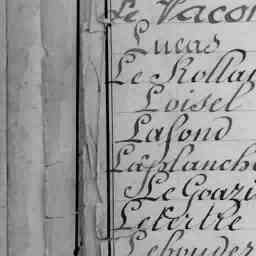 Le Vacon
Lucas
Le Rollan
Loisel
Lafond
Laplanche
Le Goazi
Lebouder